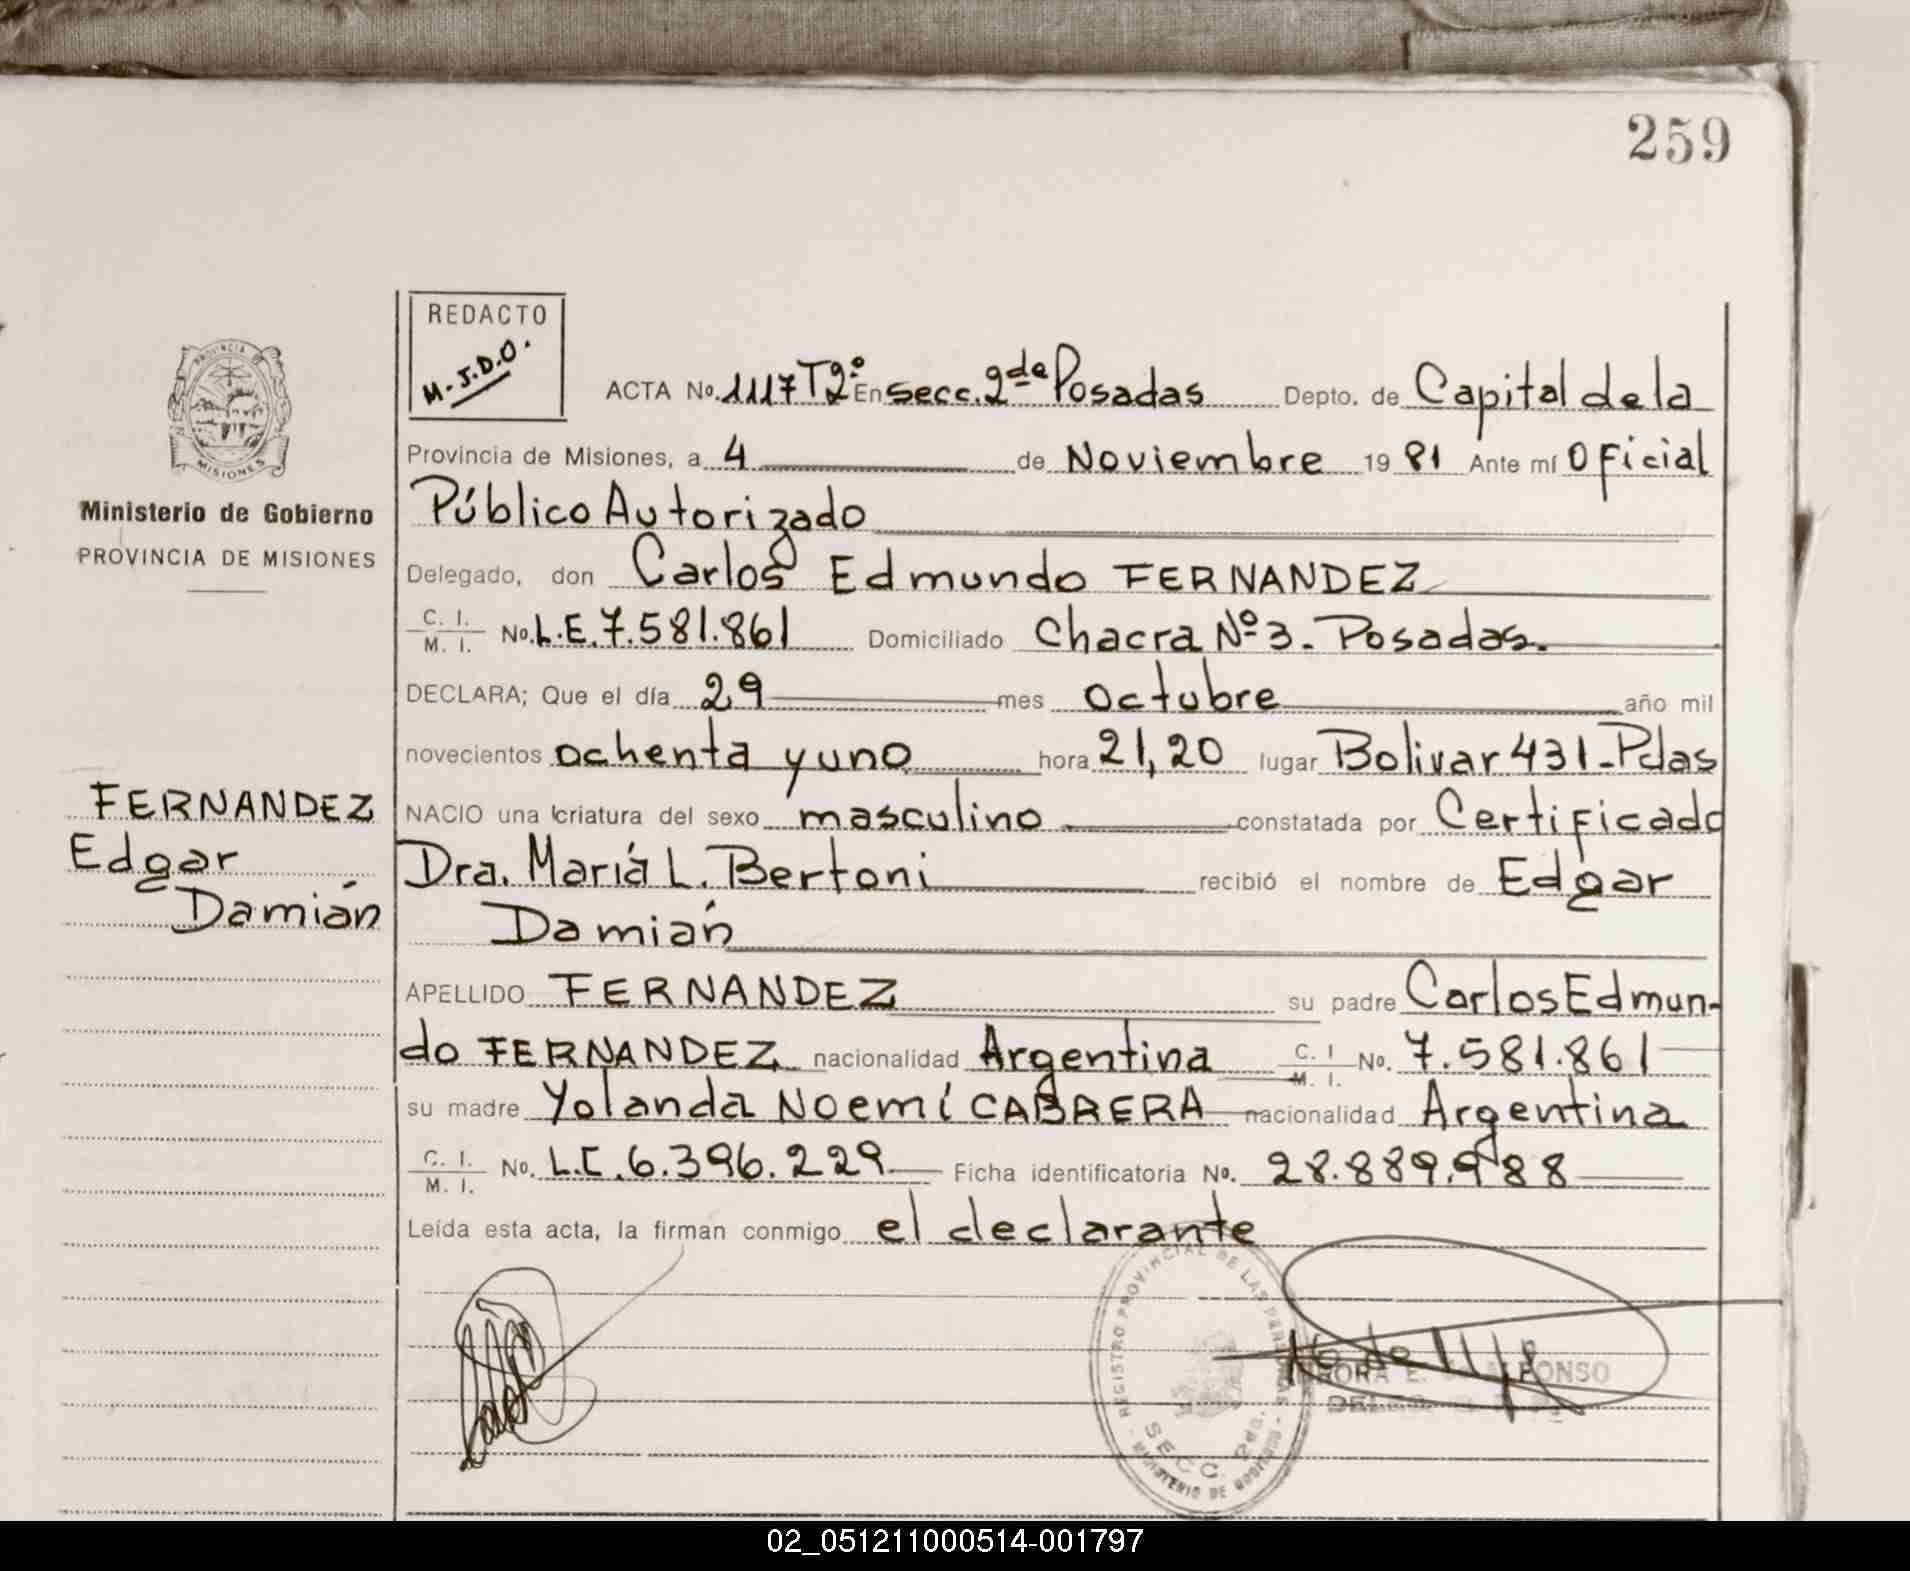 259
REDACTO
M.J.D.O.
ACTA No. 1117 T2º En Secc. 2da Posadas Depto. de Capital de la
Provincia de Misiones, a 4 de Noviembre 19 81 Ante mí Oficial
Público Autorizado
Delegado, don Carlos Edmundo FERNANDEZ
C. I. M. I. No. L.E. 7.581.861 Domiciliado Chacra Nº 3. Posadas.
DECLARA; Que el día 29 mes octubre año mil
novecientos ochenta y uno hora 21,20 lugar Bolivar 431-Pdas
NACIO una criatura del sexo masculino constatada por Certificado
Dra. Mariá L. Bertoni recibió el nombre de Edgar
Damián
APELLIDO FERNANDEZ su padre Carlos Edmun-
do FERNANDEZ nacionalidad Argentina C. I M. I. No. 7.581.861
su madre Yolanda Noemí CABRERA nacionalidad Argentina
C. I. M. I. No. L.C. 6.396.229 Ficha identificatoria No. 28.889.988
Leída esta acta, la firman conmigo el declarante
PROVINCIA DE
MISIONES
Ministerio de Gobierno
PROVINCIA DE MISIONES
FERNANDEZ
Edgar
Damián
REGISTRO PROVINCIAL DE LAS PERSONAS
SECC. 2da.
MINISTERIO DE GOBIERNO
ALFONSO
02_051211000514-001797